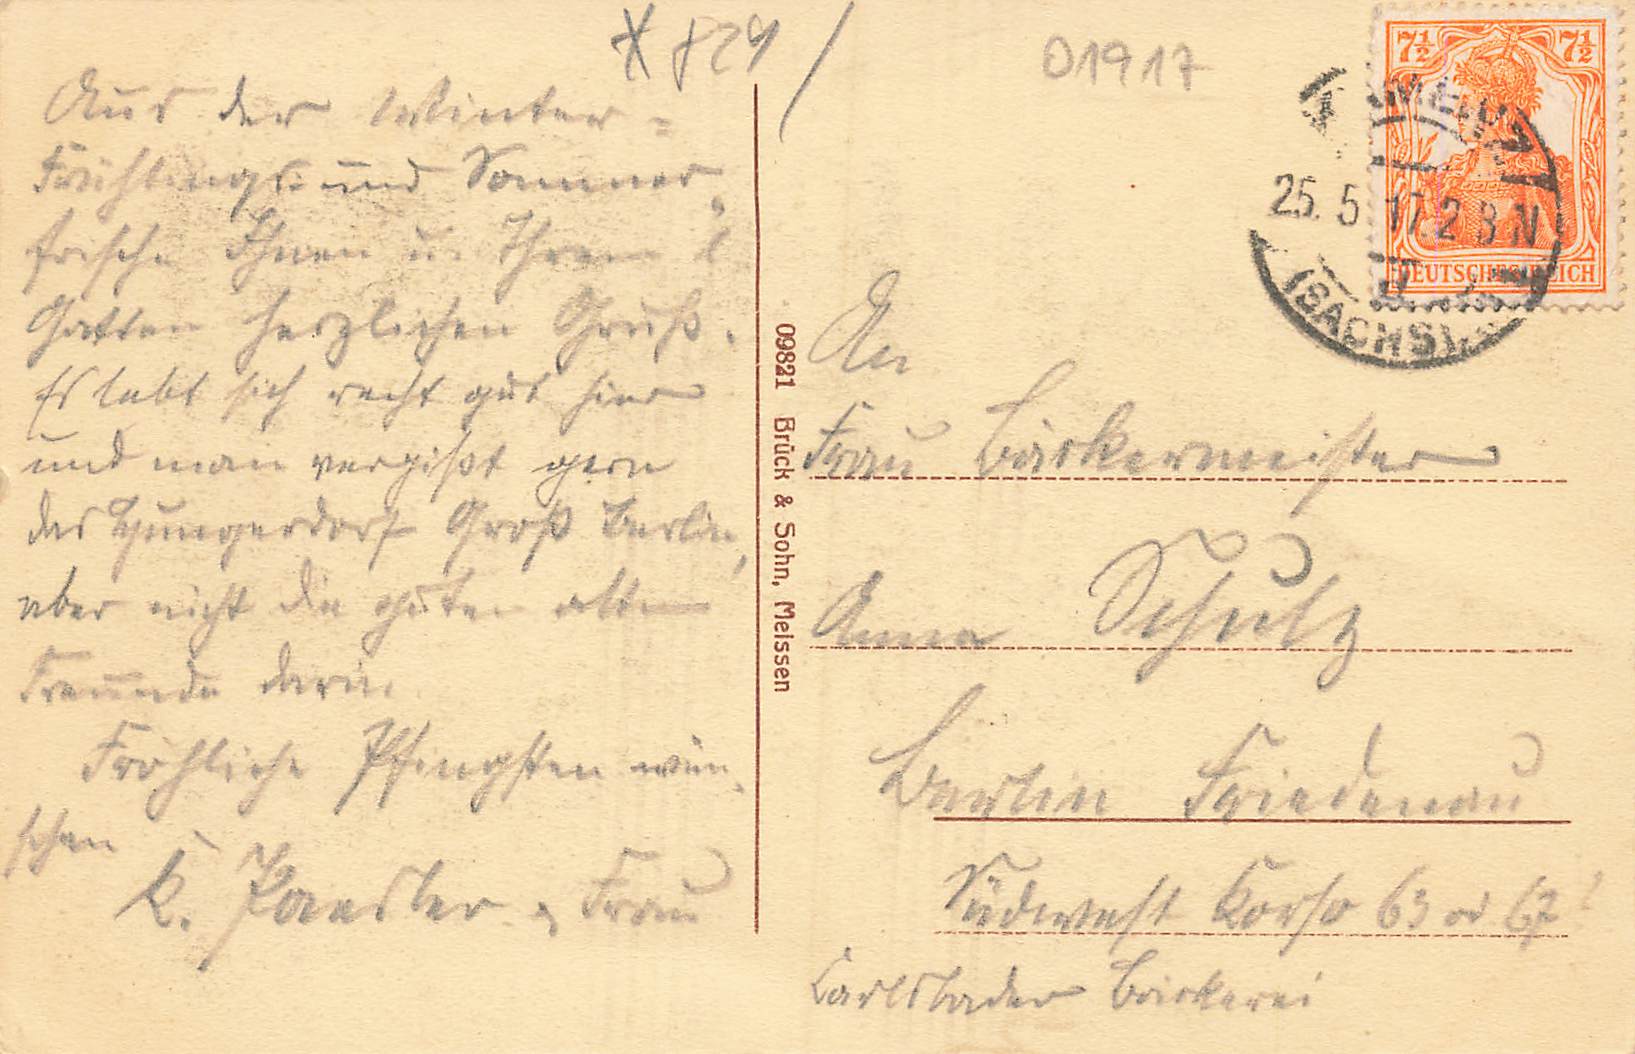 * 829 /
01917
Aus der Winter-
Frühlings- und Sommer-
frische Ihnen u. Ihrem l.
Gatten herzlichen Gruß.
Es lebt sich recht gut hier
und man vergißt gern
das Hungerdorf Groß Berlin,
aber nicht die guten alten
Freunde darin.
Fröhliche Pfingsten wün-
schen
K. Paesler u. Frau
09821 Brück & Sohn, Meissen
7½ 7½
DEUTSCHES REICH
25. 5. 17. 2-3 N
(SACHS).
An
Frau Bäckermeister
Anna Schulz
Berlin Friedenau
Südwest Korso 63 od 67?
Carlsbader Bäckerei